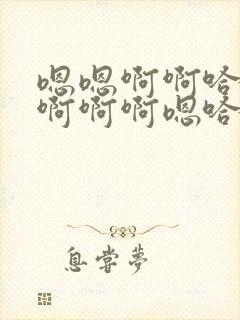 嗯嗯啊啊哈
啊啊啊嗯哈
息嘗夢